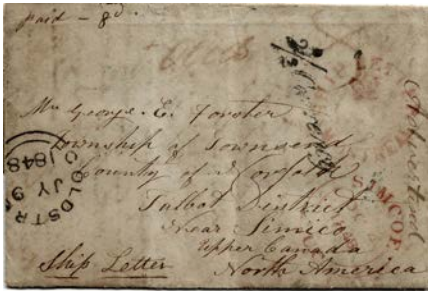 Paid - 8d.
Mr George E. Forster
Township of Townsend
County of Norfolk
Talbot District
Near Simico
Upper Canada
North America
Ship Letter
Advertised
SIMCOE
COLDSTR
JY 9
1848